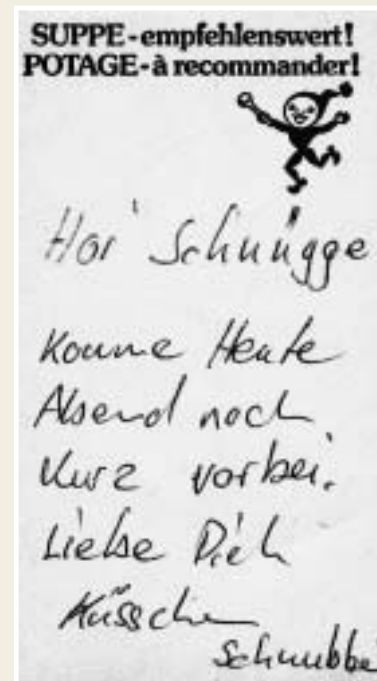 SUPPE-empfehlenswert!
POTAGE-à recommander!
Hoi Schnügge
Komme Heute
Abend noch
Kurz vorbei.
Liebe Dich
Küsschen
Schnubbe